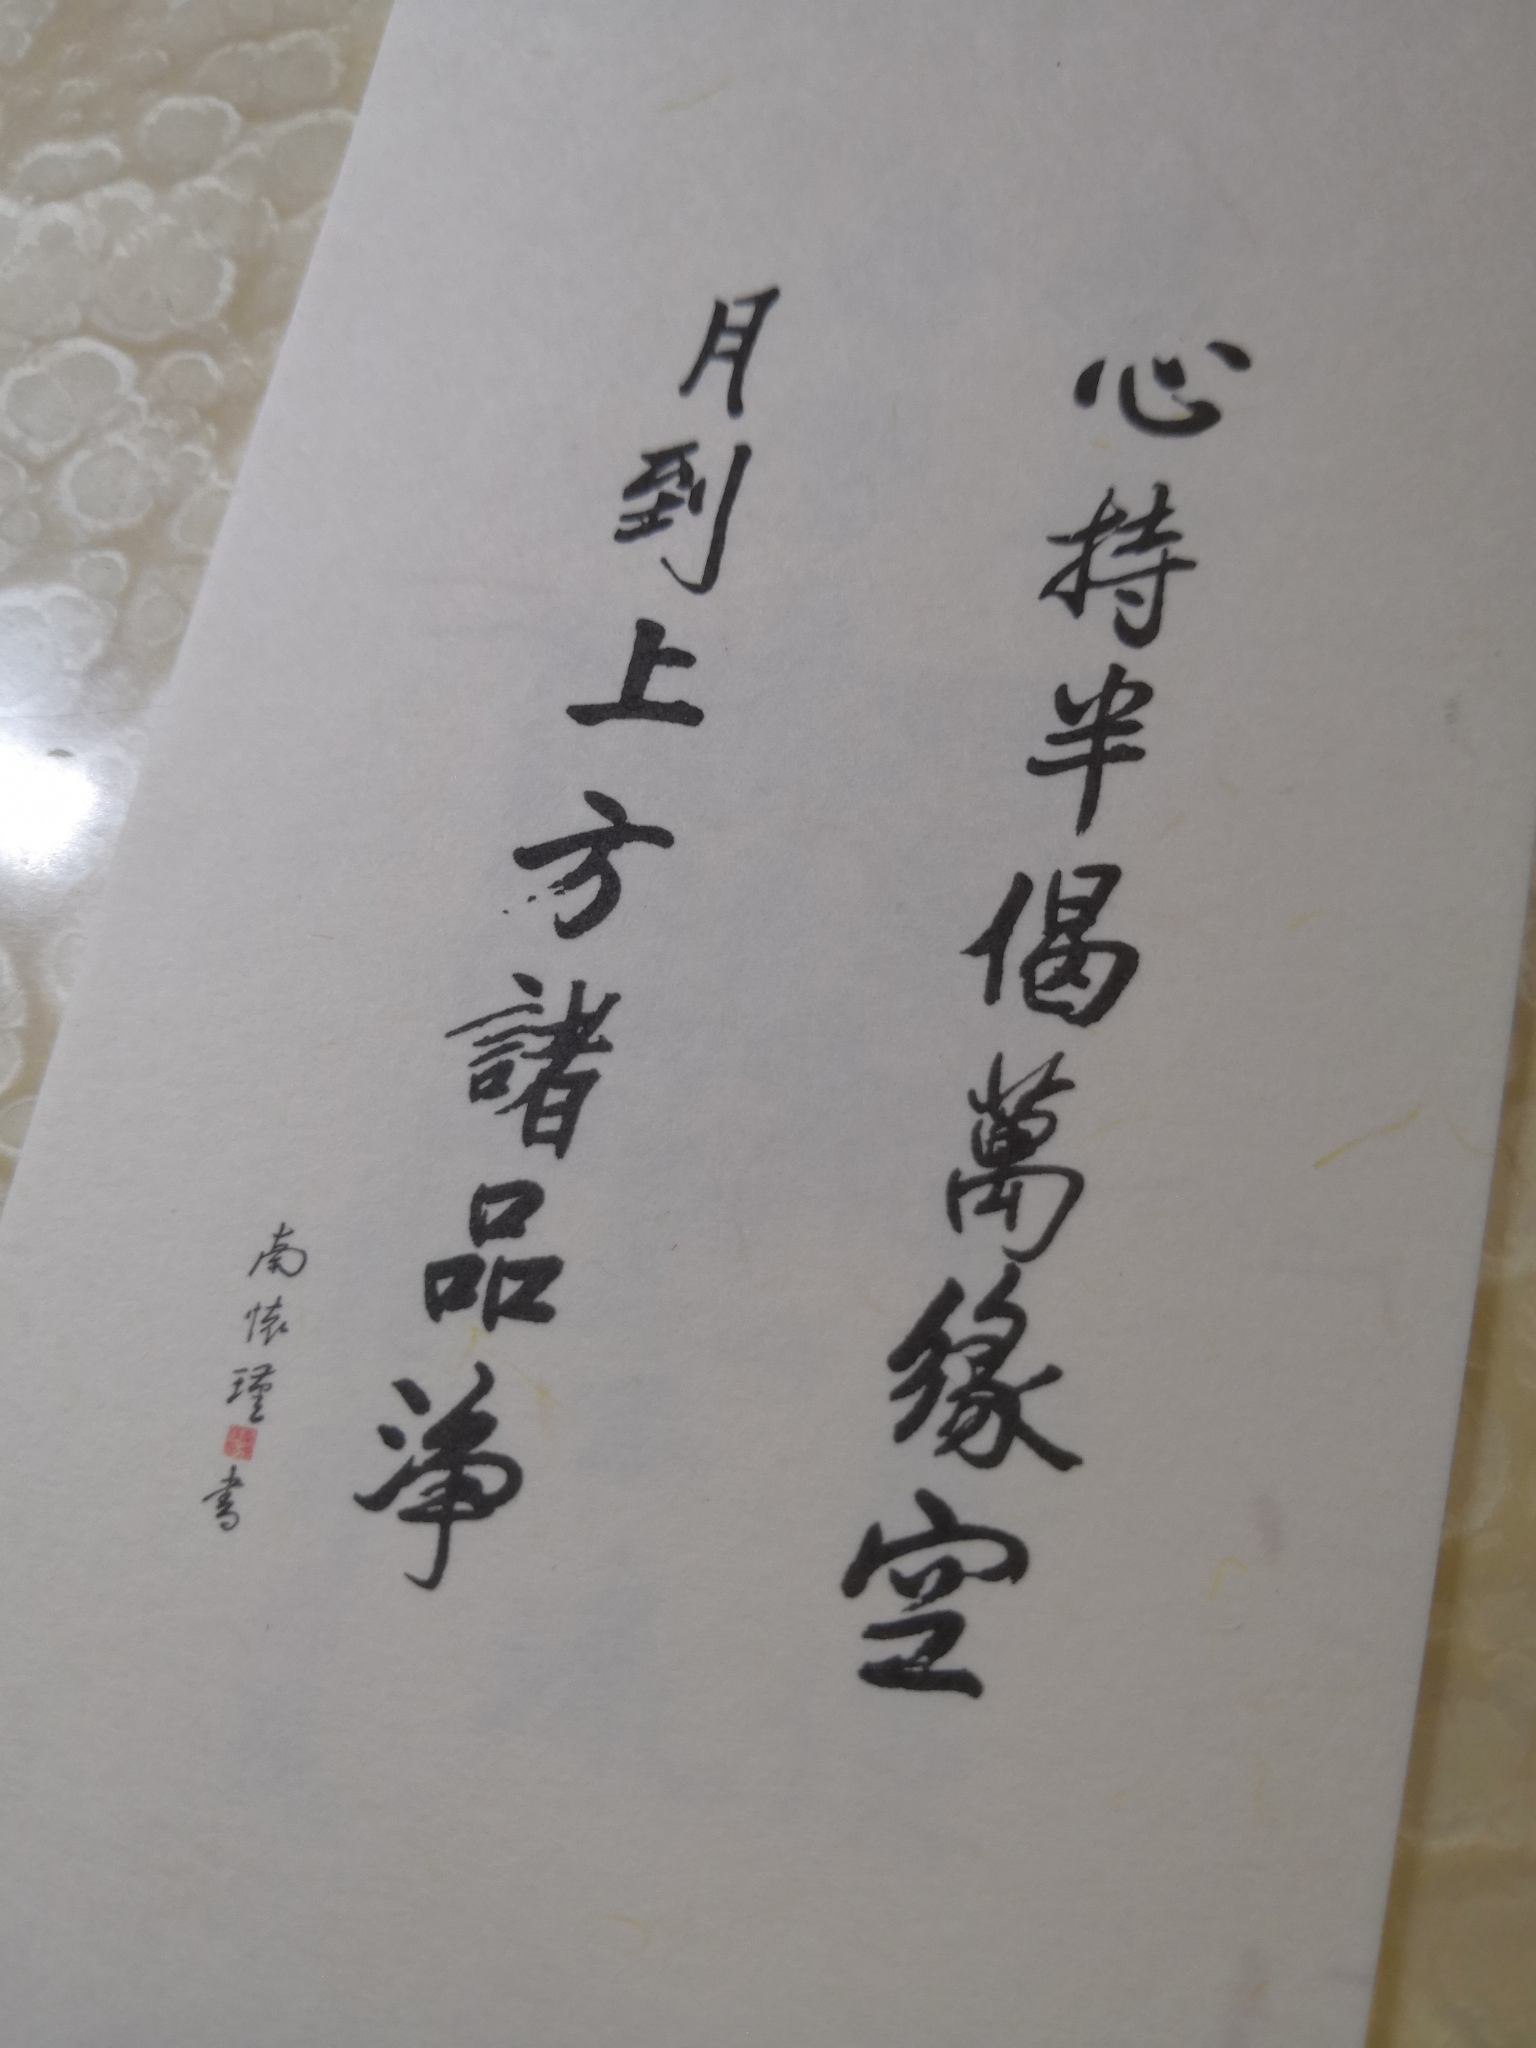 心持半偈萬緣空
月到上方諸品淨
南懷瑾書